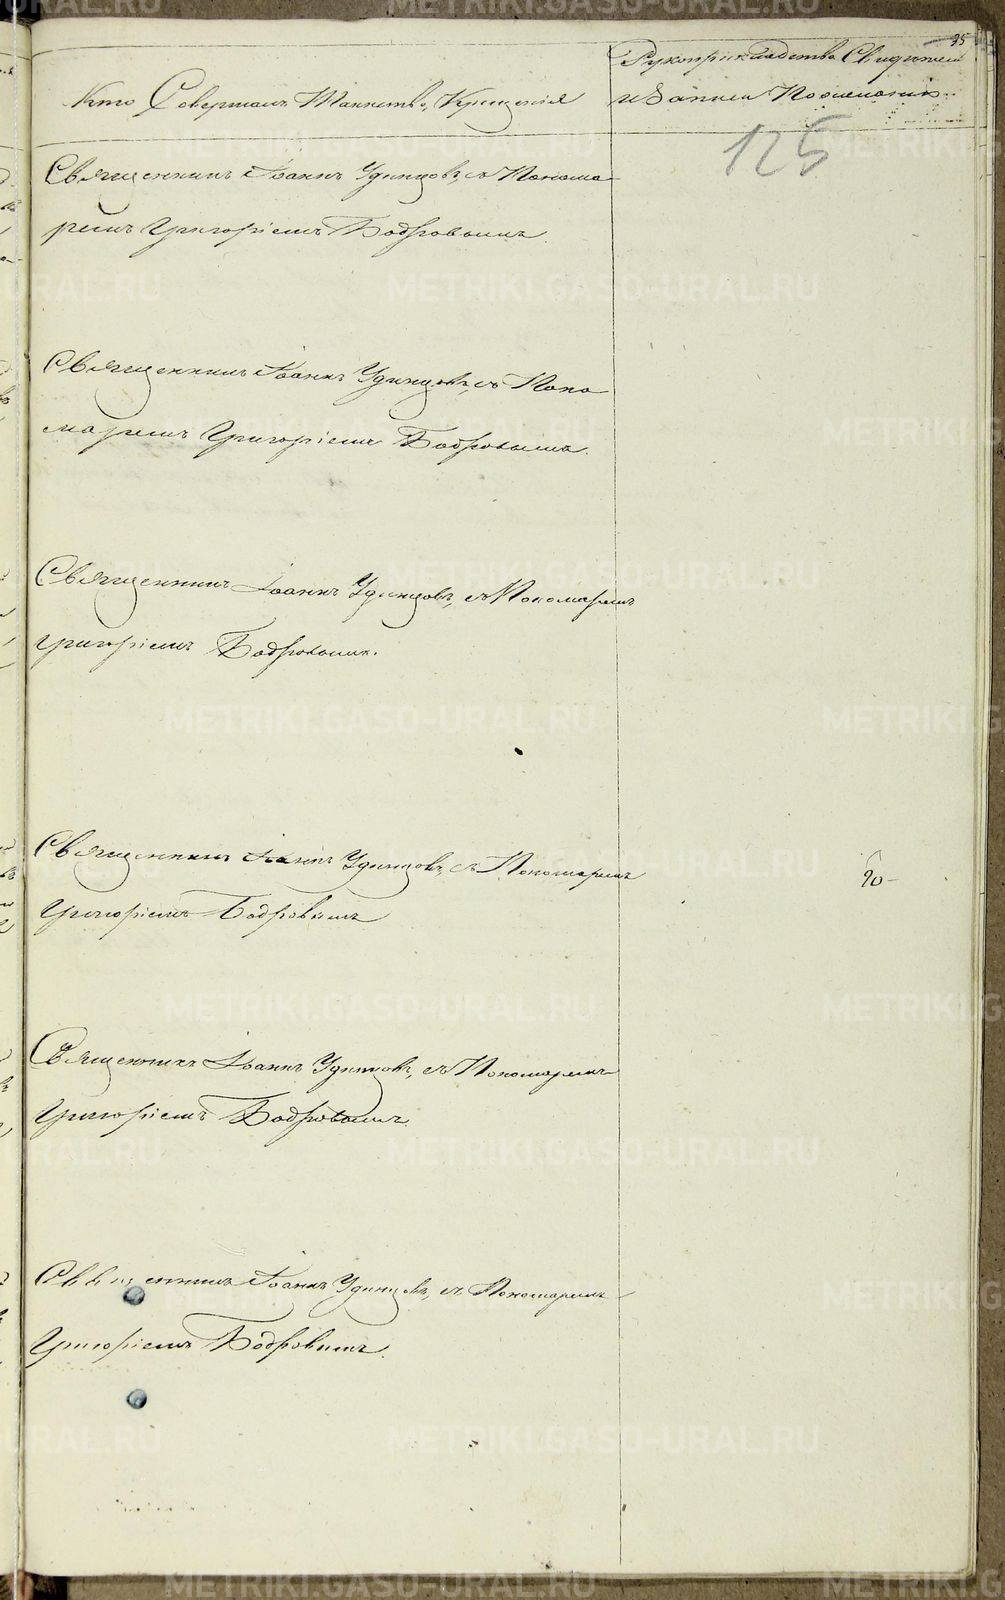 35
Кто Совершалъ Таинство, Крещенія
Рукоприкладства Свидѣтелей
и Записи По желанію
125
Священникъ Іоаннъ Удинцовъ, съ Понома
ремъ Григоріемъ Бодровымъ.
Священникъ Іоаннъ Удинцовъ, съ Поно
маремъ Григоріемъ Бодровымъ.
Священникъ Іоаннъ Удинцовъ, съ Пономаремъ
Григоріемъ Бодровымъ.
Священникъ Іоаннъ Удинцовъ, съ Пономаремъ
Григоріемъ Бодровымъ
Священникъ Іоаннъ Удинцовъ, съ Пономаремъ
Григоріемъ Бодровымъ.
Священникъ Іоаннъ Удинцовъ, съ Пономаремъ
Григоріемъ Бодровымъ.
METRIKI.GASO-URAL.RU